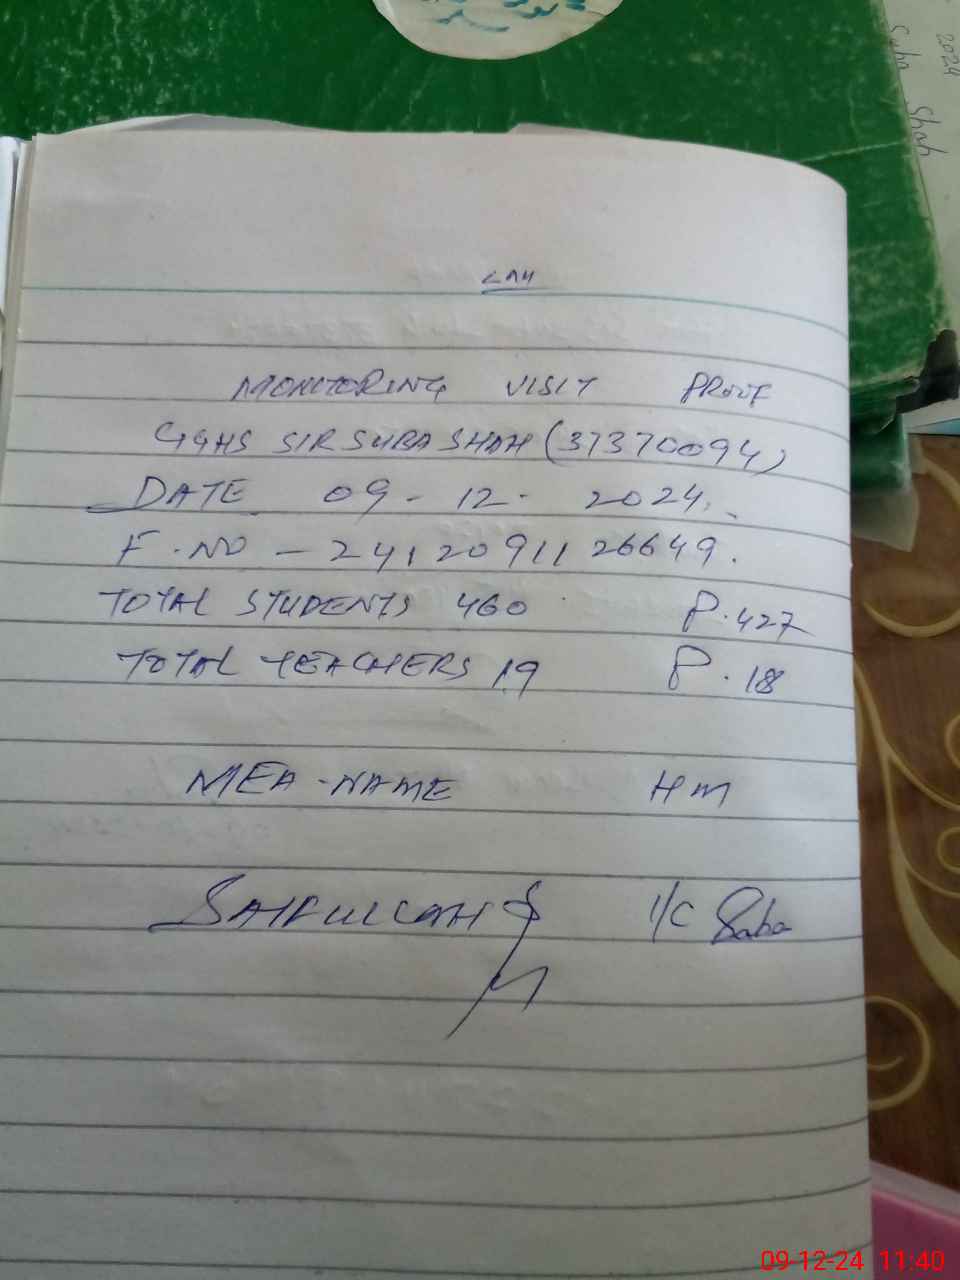 2024
Suba Shah
MONITORING VISIT PROOF
GGHS SIR SUBA SHAH (37370094)
DATE 09-12-2024.
F.NO - 24120911 26649.
TOTAL STUDENTS 460 P.427
TOTAL TEACHERS 19 P.18
MEA-NAME HM
SAIFULLAH I/C Saba
09-12-24 11:40